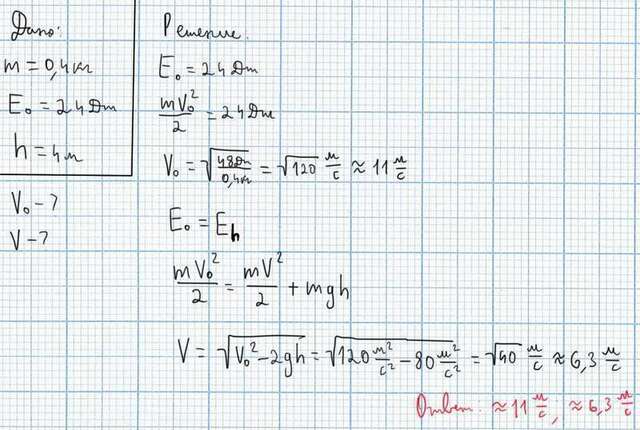 Дано:
m = 0,4 кг
E₀ = 24 Дж
h = 4 м
V₀ - ?
V - ?
Решение.
E₀ = 24 Дж
mV₀²/2 = 24 Дж
V₀ = √(48Дж/0,4кг) = √120 м/с ≈ 11 м/с
E₀ = Eh
mV₀²/2 = mV²/2 + mgh
V = √(V₀² - 2gh) = √(120 м²/с² - 80 м²/с²) = √40 м/с ≈ 6,3 м/с
Ответ: ≈ 11 м/с; ≈ 6,3 м/с